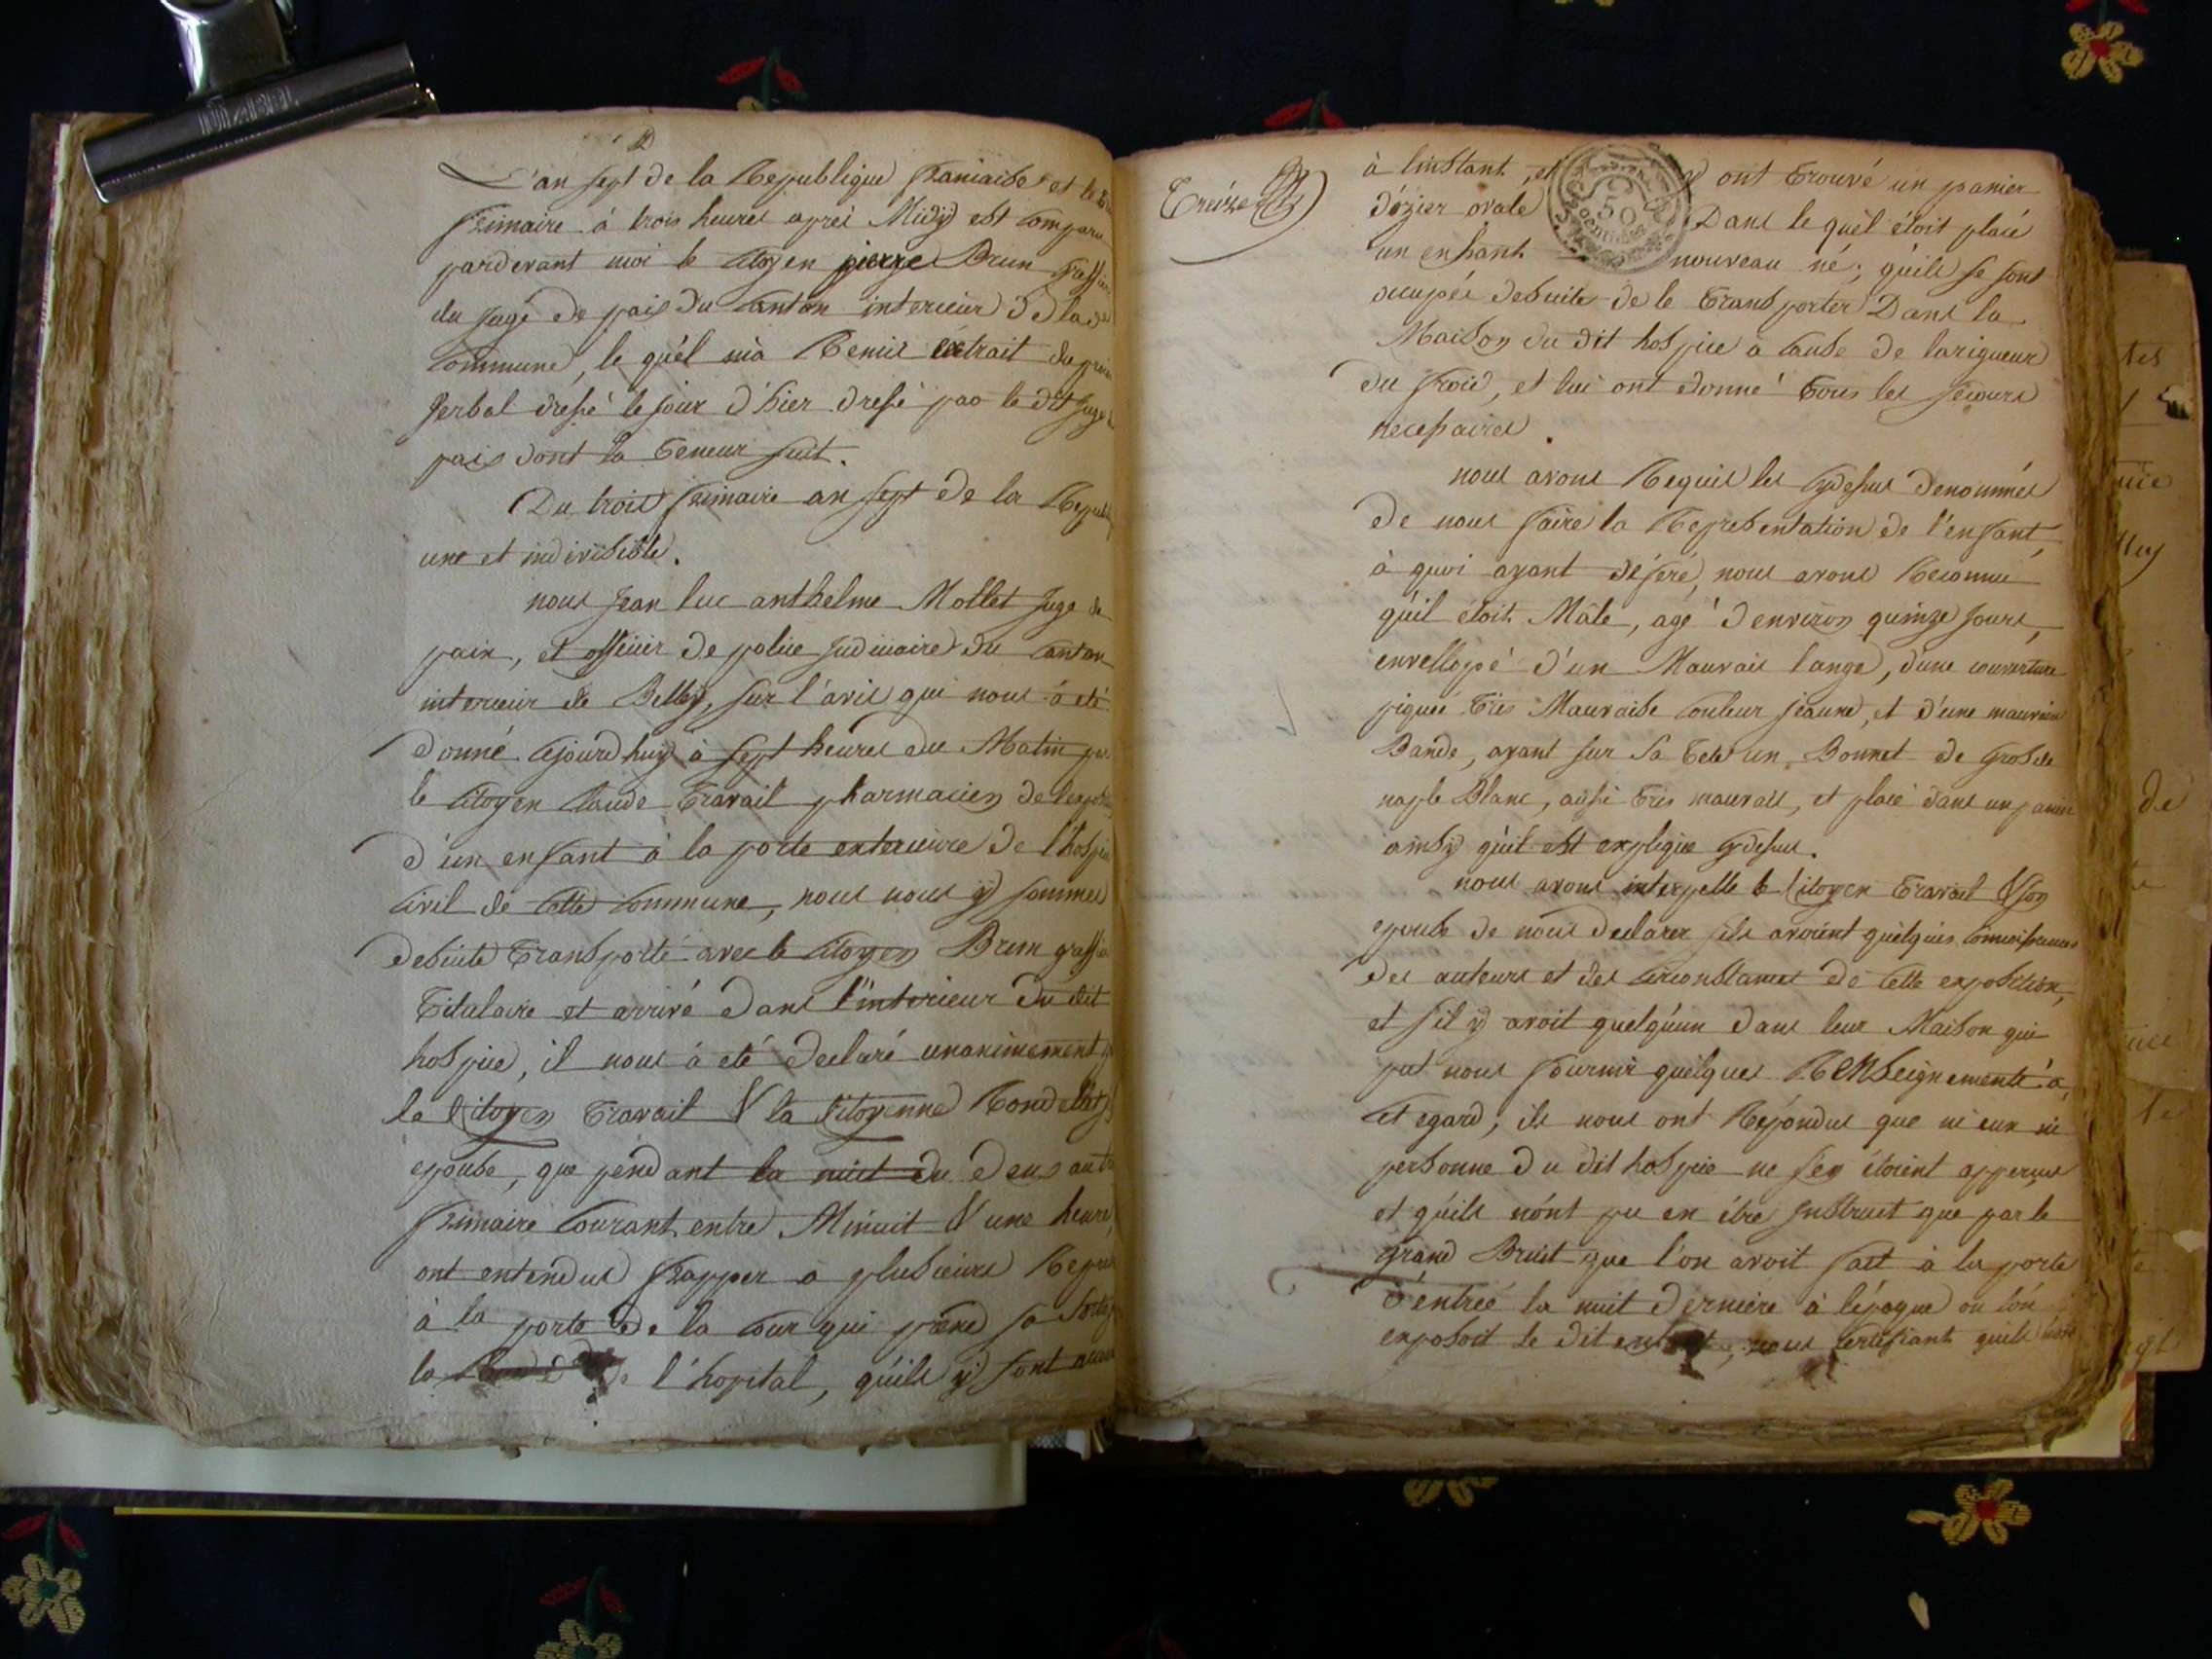 L'an sept de la Republique franiaise et le
frimaire à trois heures aprés Midÿ est compara
pardevant moi le citoÿen pierre Brun greffier
du juge de paix du canton interieur de la de
commune, le quél m'a Remis extrait du
Verbal dressé le jour d'hier dressé par le dit juge
paix dont la teneur suit.
Du trois frimaire an sept de la Republ
une et indivisible.
nous jean luc anthelme Mollet juge de
paix, et officier de police judiciaire du canton
interieur de Belley, sur l'avis qui nous á eté
donné cejourdhuÿ à sept heures du Matin par
le citoÿen claude travail pharmacien de l'expos
d'un enfant à la porte exterieure de l'hospice
civil de cette commune, nous nous ÿ sommes
desuite transporté avec le citoÿen Brun greffier
titulaire et arrivé dans l'interieur du dit
hospice, il nous à eté declaré unanimement
le Citoyen travail & la Citoyenne
epouse, que pendant la nuit du deux au
frimaire courant entre Minuit & une heure,
ont entendus frapper a plusieurs Repri
à la porte de la cour qui prend sa sortie
la de l'hopital, quils ÿ sont
Treize
à linstant, et ÿ ont trouvé un panier
d'ozier ovale Dans le quél étoit placé
50
un enfant nouveau né; quils se sont
occupés desuite de le transporter Dans la
Maison du dit hospice a cause de larigueur
du froid, et lui ont donné tous les secours
necessaires.
nous avons Requis les cydessus denommés
de nous faire la Representation de l'enfant,
à quoi ayant déféré, nous avons Reconnu
qu'il étoit Mâle, agé d'environ quinze jours,
enveloppé d'un Mauvais lange, d'une couverture
piquée très Mauvaise couleur jeaune, et d'une mauvaise
Bande, ayant sur sa tete un Bonnet de gros de
naple Blanc, aussi très mauvais, et placé dans un panier
ainsÿ qu'il est expliqué cydessus.
nous avons interpellé le Citoyen travail & son
epouse de nous declarer sils avoient quélques connoissances
des auteurs et des circonstances de cette exposition,
et s'il ÿ avoit quelqu'un dans leur Maison qui
put nous fournir quélques Renseignements à
cet egard; ils nous ont Répondus que ni eux ni
personne du dit hospice ne s'en étoient apperçus
et qu'ils n'ont pu en être jnstruit que par le
grand Bruit que l'on avoit fait à la porte
d'entrée la nuit derniere à l'époque ou lon
exposoit le dit enfant, nous certifiant quils